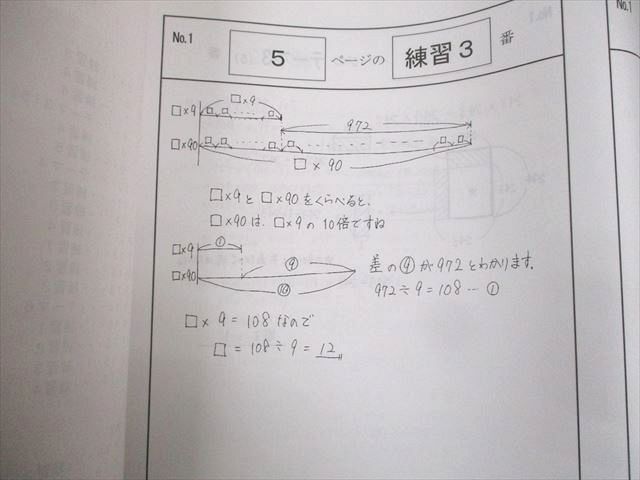 No.1
5 ページの 練習3 番
□×9
□×9
972
□×90
□×90
□×9と □×90をくらべると、
□×90は、□×9の 10倍ですね
□×9 ①
□×90 ⑨
⑩
差の⑨が972とわかります。
972÷9=108… ①
□×9=108なので
□=108÷9=12
No.1